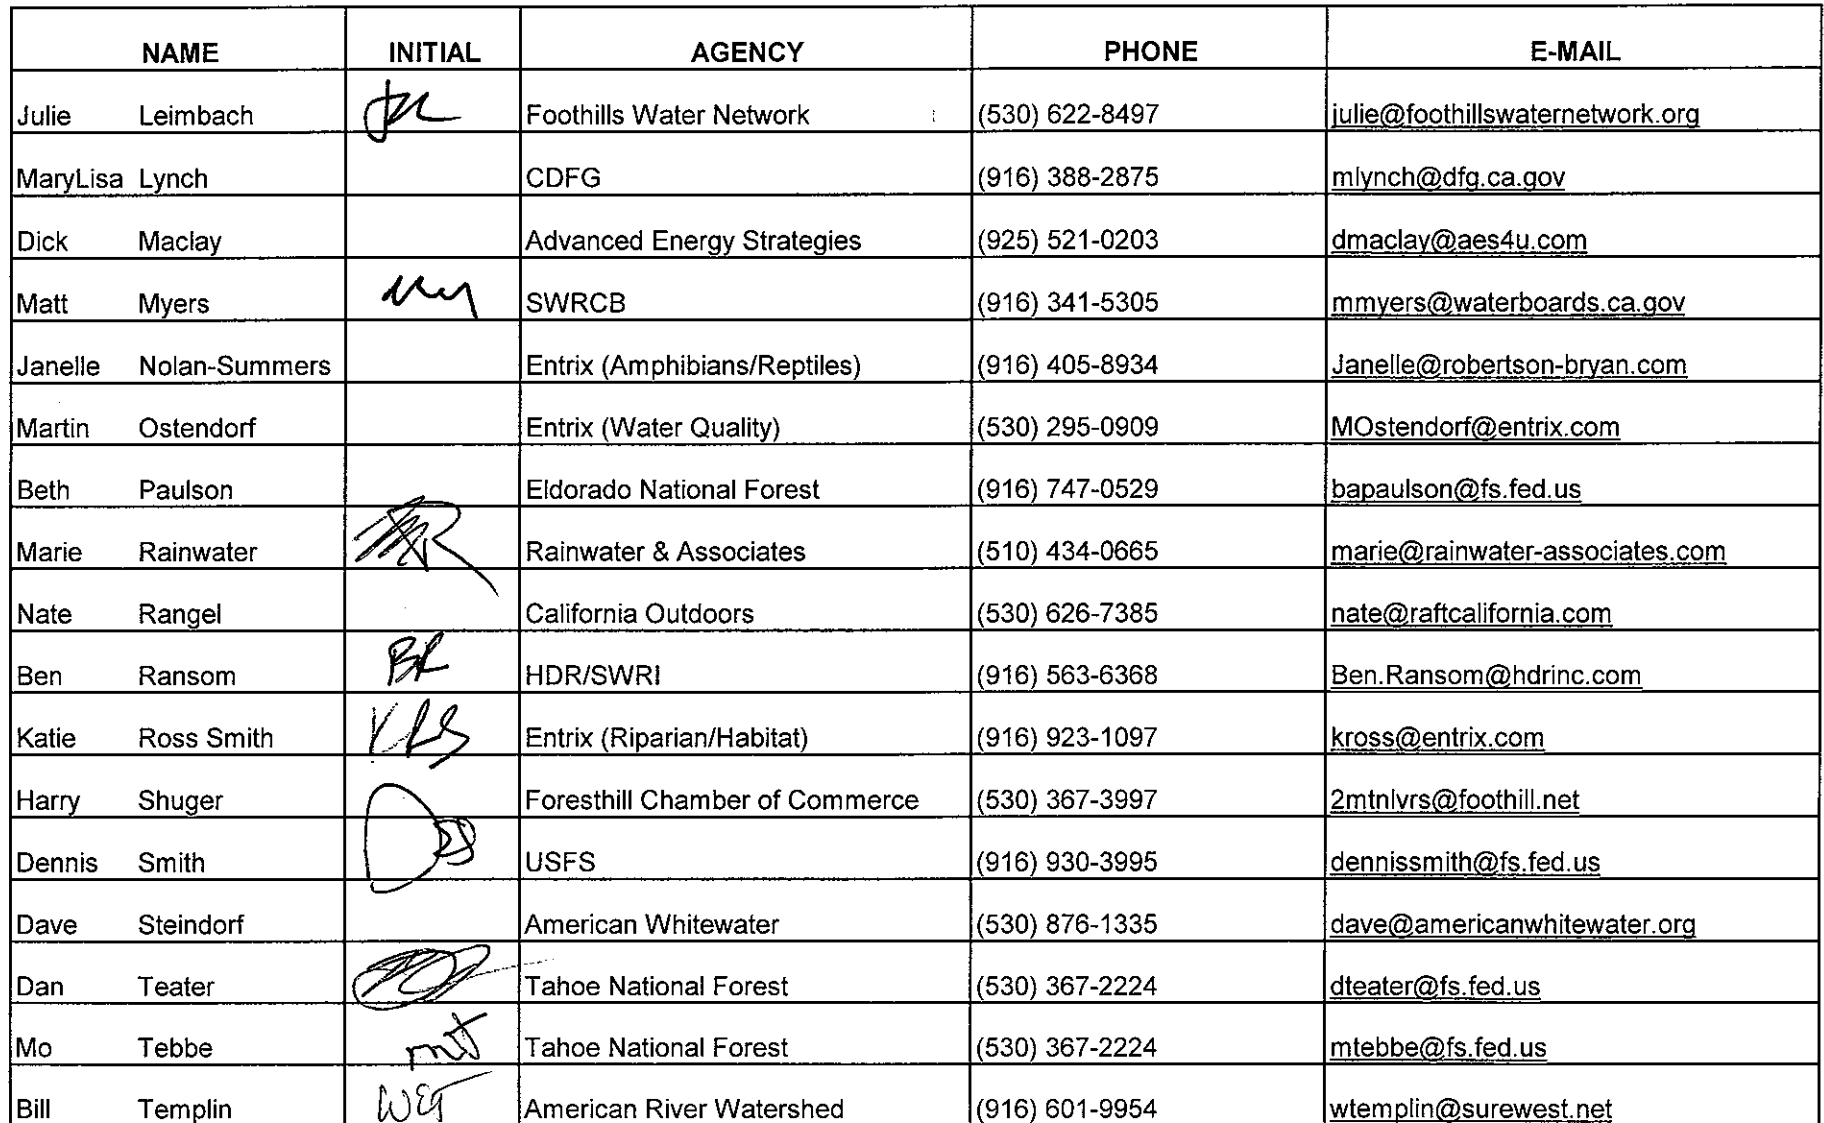 NAME INITIAL AGENCY PHONE E-MAIL
Julie Leimbach Foothills Water Network (530) 622-8497 julie@foothillswaternetwork.org
MaryLisa Lynch CDFG (916) 388-2875 mlynch@dfg.ca.gov
Dick Maclay Advanced Energy Strategies (925) 521-0203 dmaclay@aes4u.com
Matt Myers SWRCB (916) 341-5305 mmyers@waterboards.ca.gov
Janelle Nolan-Summers Entrix (Amphibians/Reptiles) (916) 405-8934 Janelle@robertson-bryan.com
Martin Ostendorf Entrix (Water Quality) (530) 295-0909 MOstendorf@entrix.com
Beth Paulson Eldorado National Forest (916) 747-0529 bapaulson@fs.fed.us
Marie Rainwater Rainwater & Associates (510) 434-0665 marie@rainwater-associates.com
Nate Rangel California Outdoors (530) 626-7385 nate@raftcalifornia.com
Ben Ransom BR HDR/SWRI (916) 563-6368 Ben.Ransom@hdrinc.com
Katie Ross Smith KRS Entrix (Riparian/Habitat) (916) 923-1097 kross@entrix.com
Harry Shuger Foresthill Chamber of Commerce (530) 367-3997 2mtnlvrs@foothill.net
Dennis Smith USFS (916) 930-3995 dennissmith@fs.fed.us
Dave Steindorf American Whitewater (530) 876-1335 dave@americanwhitewater.org
Dan Teater Tahoe National Forest (530) 367-2224 dteater@fs.fed.us
Mo Tebbe mt Tahoe National Forest (530) 367-2224 mtebbe@fs.fed.us
Bill Templin WET American River Watershed (916) 601-9954 wtemplin@surewest.net